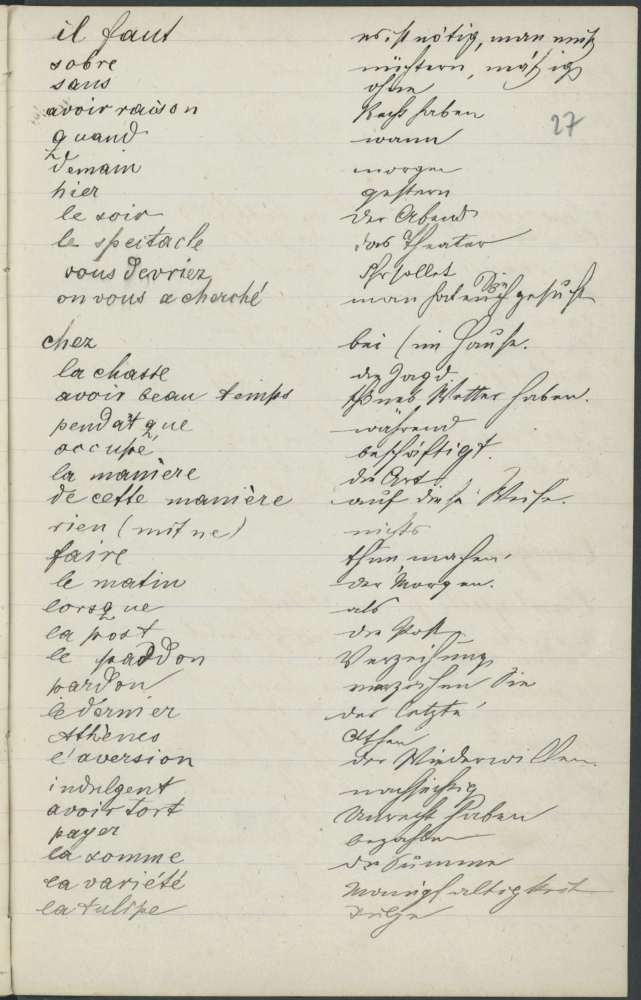 il faut es ist nötig, man muß
sobre nüchtern, mäßig
sans ohne
avoir raison Recht haben
27
quand wann
demain morgen
hier gestern
le soir Der Abend
le spectacle das Theater
vous devriez Ihr solltet
on vous a cherché man hat euch Sie gesucht
chez bei (im Hause.
la chasse die Jagd
avoir beau temps schönes Wetter haben.
pendat que während
occupé beschäftigt.
la manière die Art
de cette manière auf diese Weise.
rien (mit ne) nichts
faire thun machen,
le matin der Morgen.
lorsque als
la post die Post
le paddon Verzeihung
pardon verzeihen Sie
le dernier der letzte
Athènes Athen
l'aversion der Wiederwillen.
indulgent nachsichtig
avoir tort Unrecht haben
payer bezahlen
la somme die Summe
la variété Manigfaltigkeit
la tulipe Tulpe